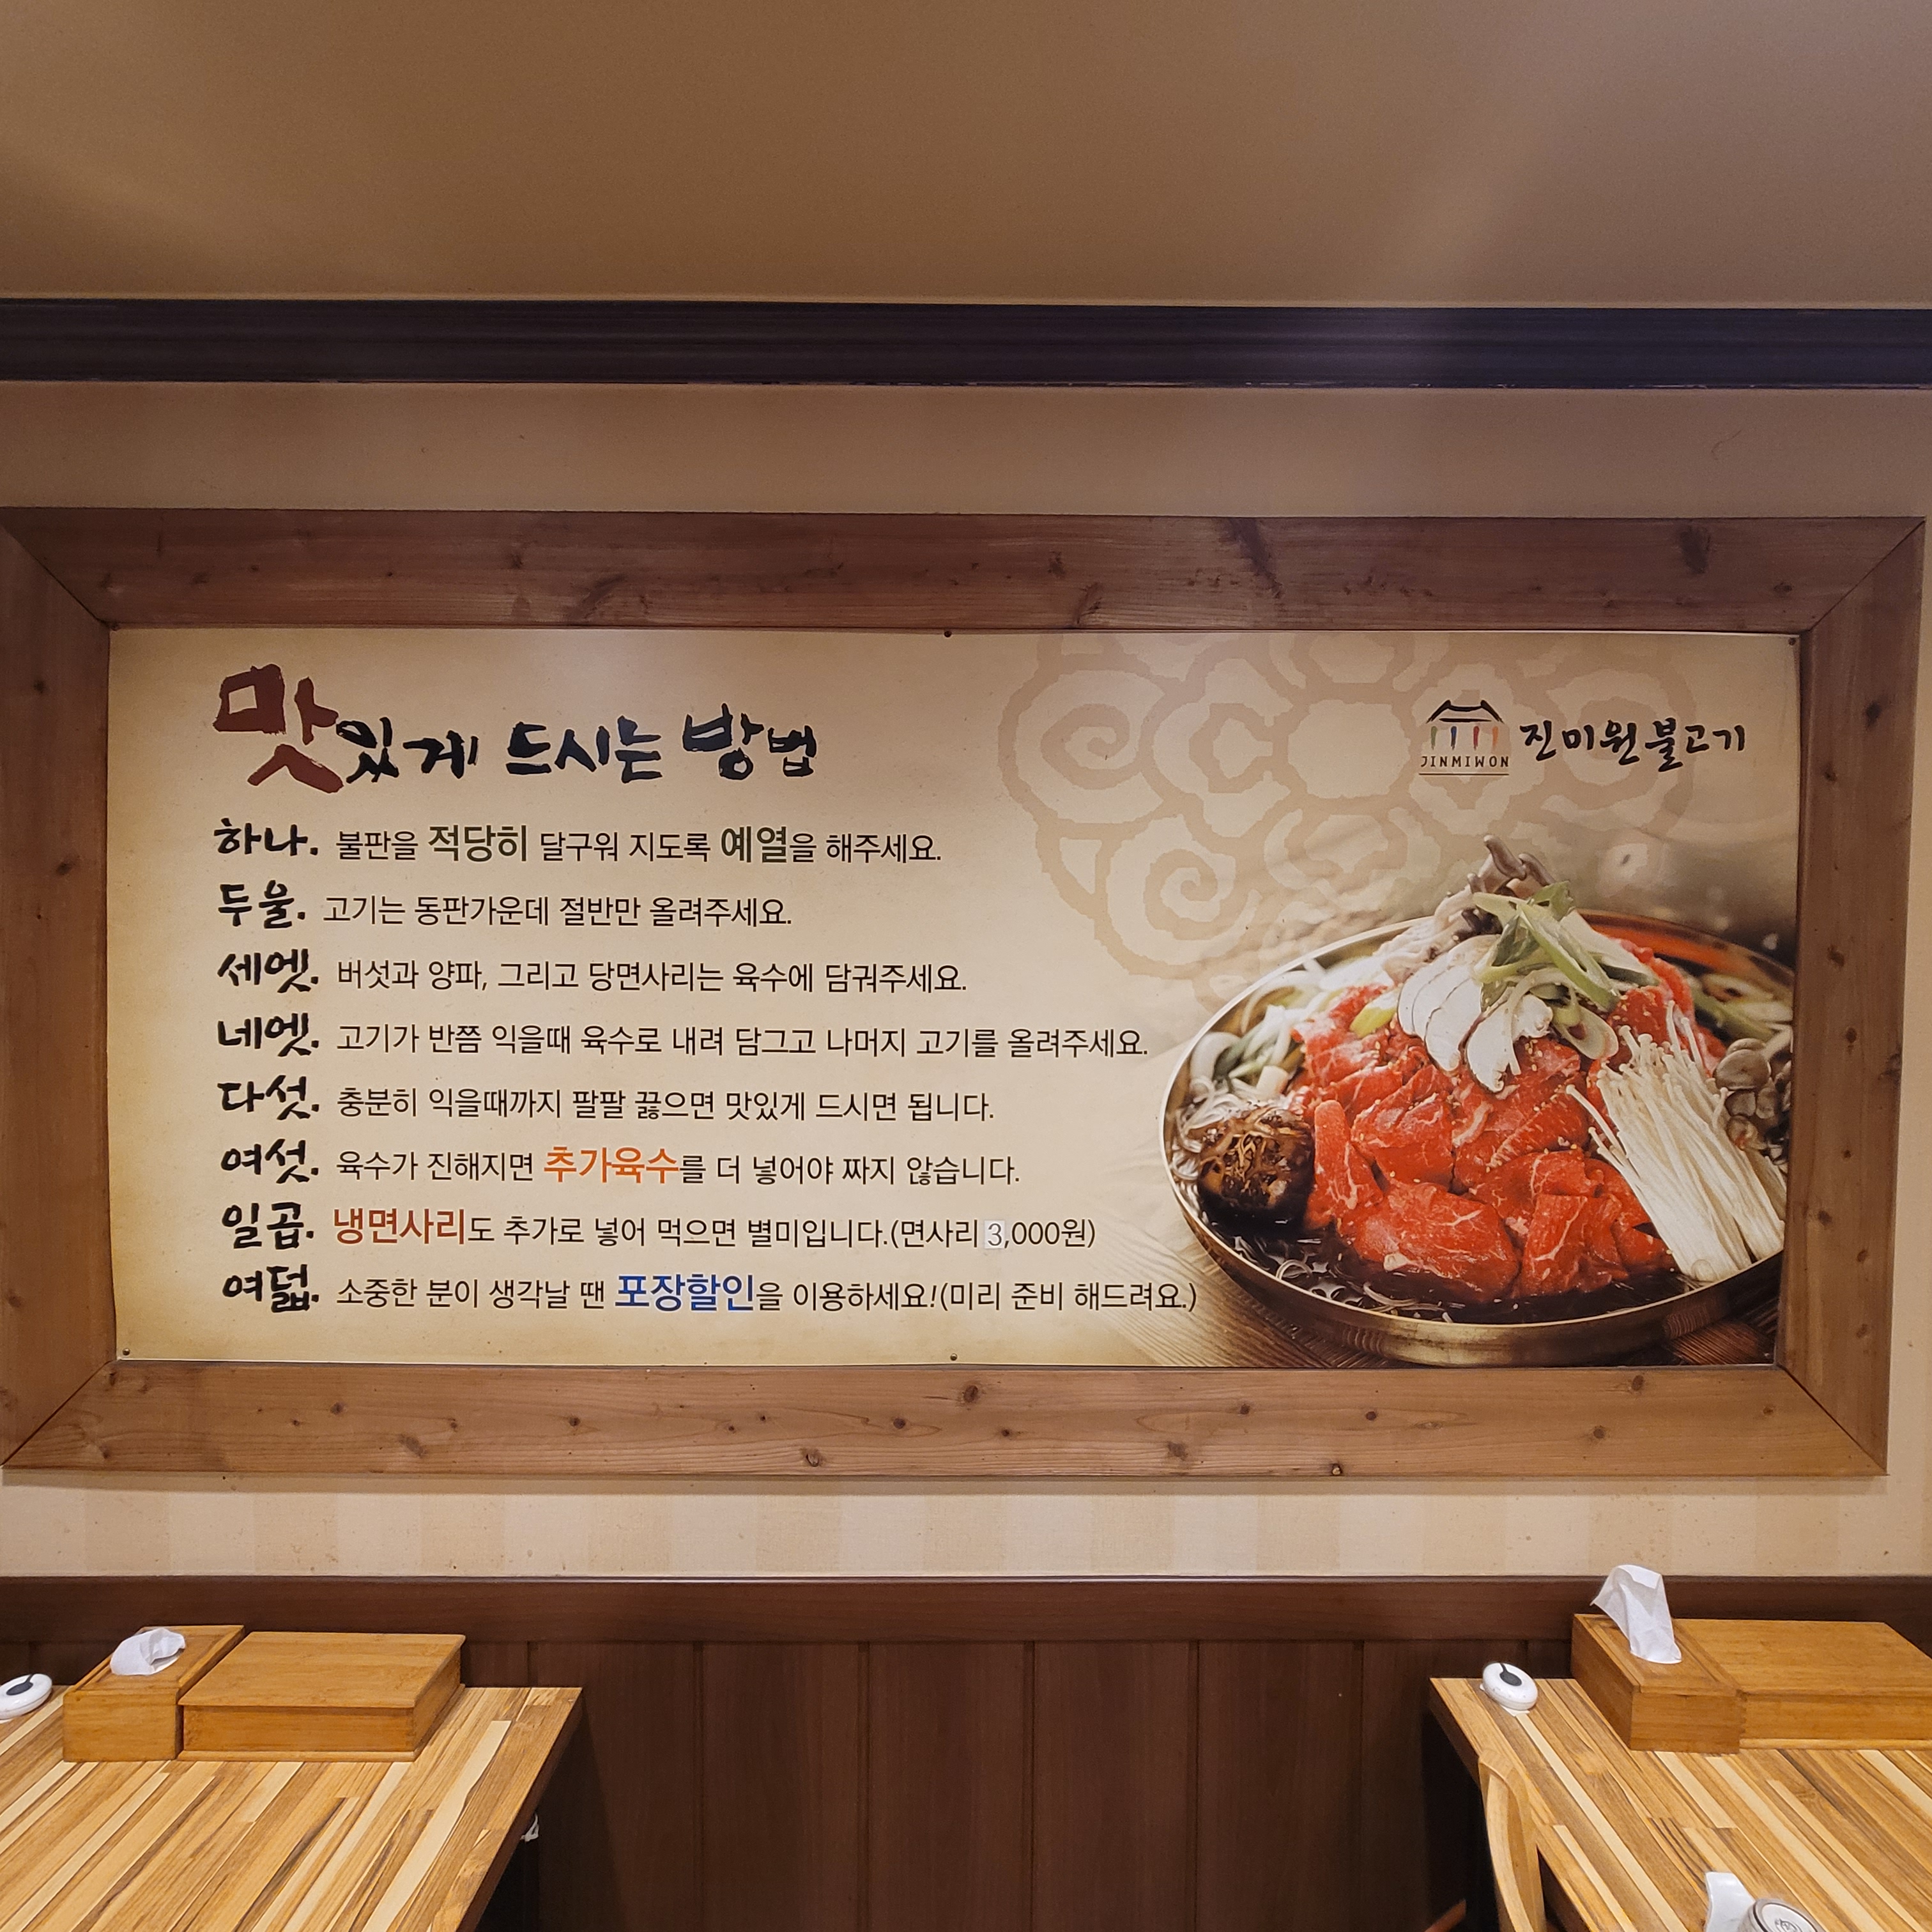 맛있게 드시는 방법
JINMIWON 진미원 불고기
하나. 불판을 적당히 달구워 지도록 예열을 해주세요.
두울. 고기는 동판가운데 절반만 올려주세요.
세엣. 버섯과 양파, 그리고 당면사리는 육수에 담궈주세요.
네엣. 고기가 반쯤 익을때 육수로 내려 담그고 나머지 고기를 올려주세요.
다섯. 충분히 익을때까지 팔팔 끓으면 맛있게 드시면 됩니다.
여섯. 육수가 진해지면 추가육수를 더 넣어야 짜지 않습니다.
일곱. 냉면사리도 추가로 넣어 먹으면 별미입니다.(면사리 3,000원)
여덟. 소중한 분이 생각날 땐 포장할인을 이용하세요!(미리 준비 해드려요.)